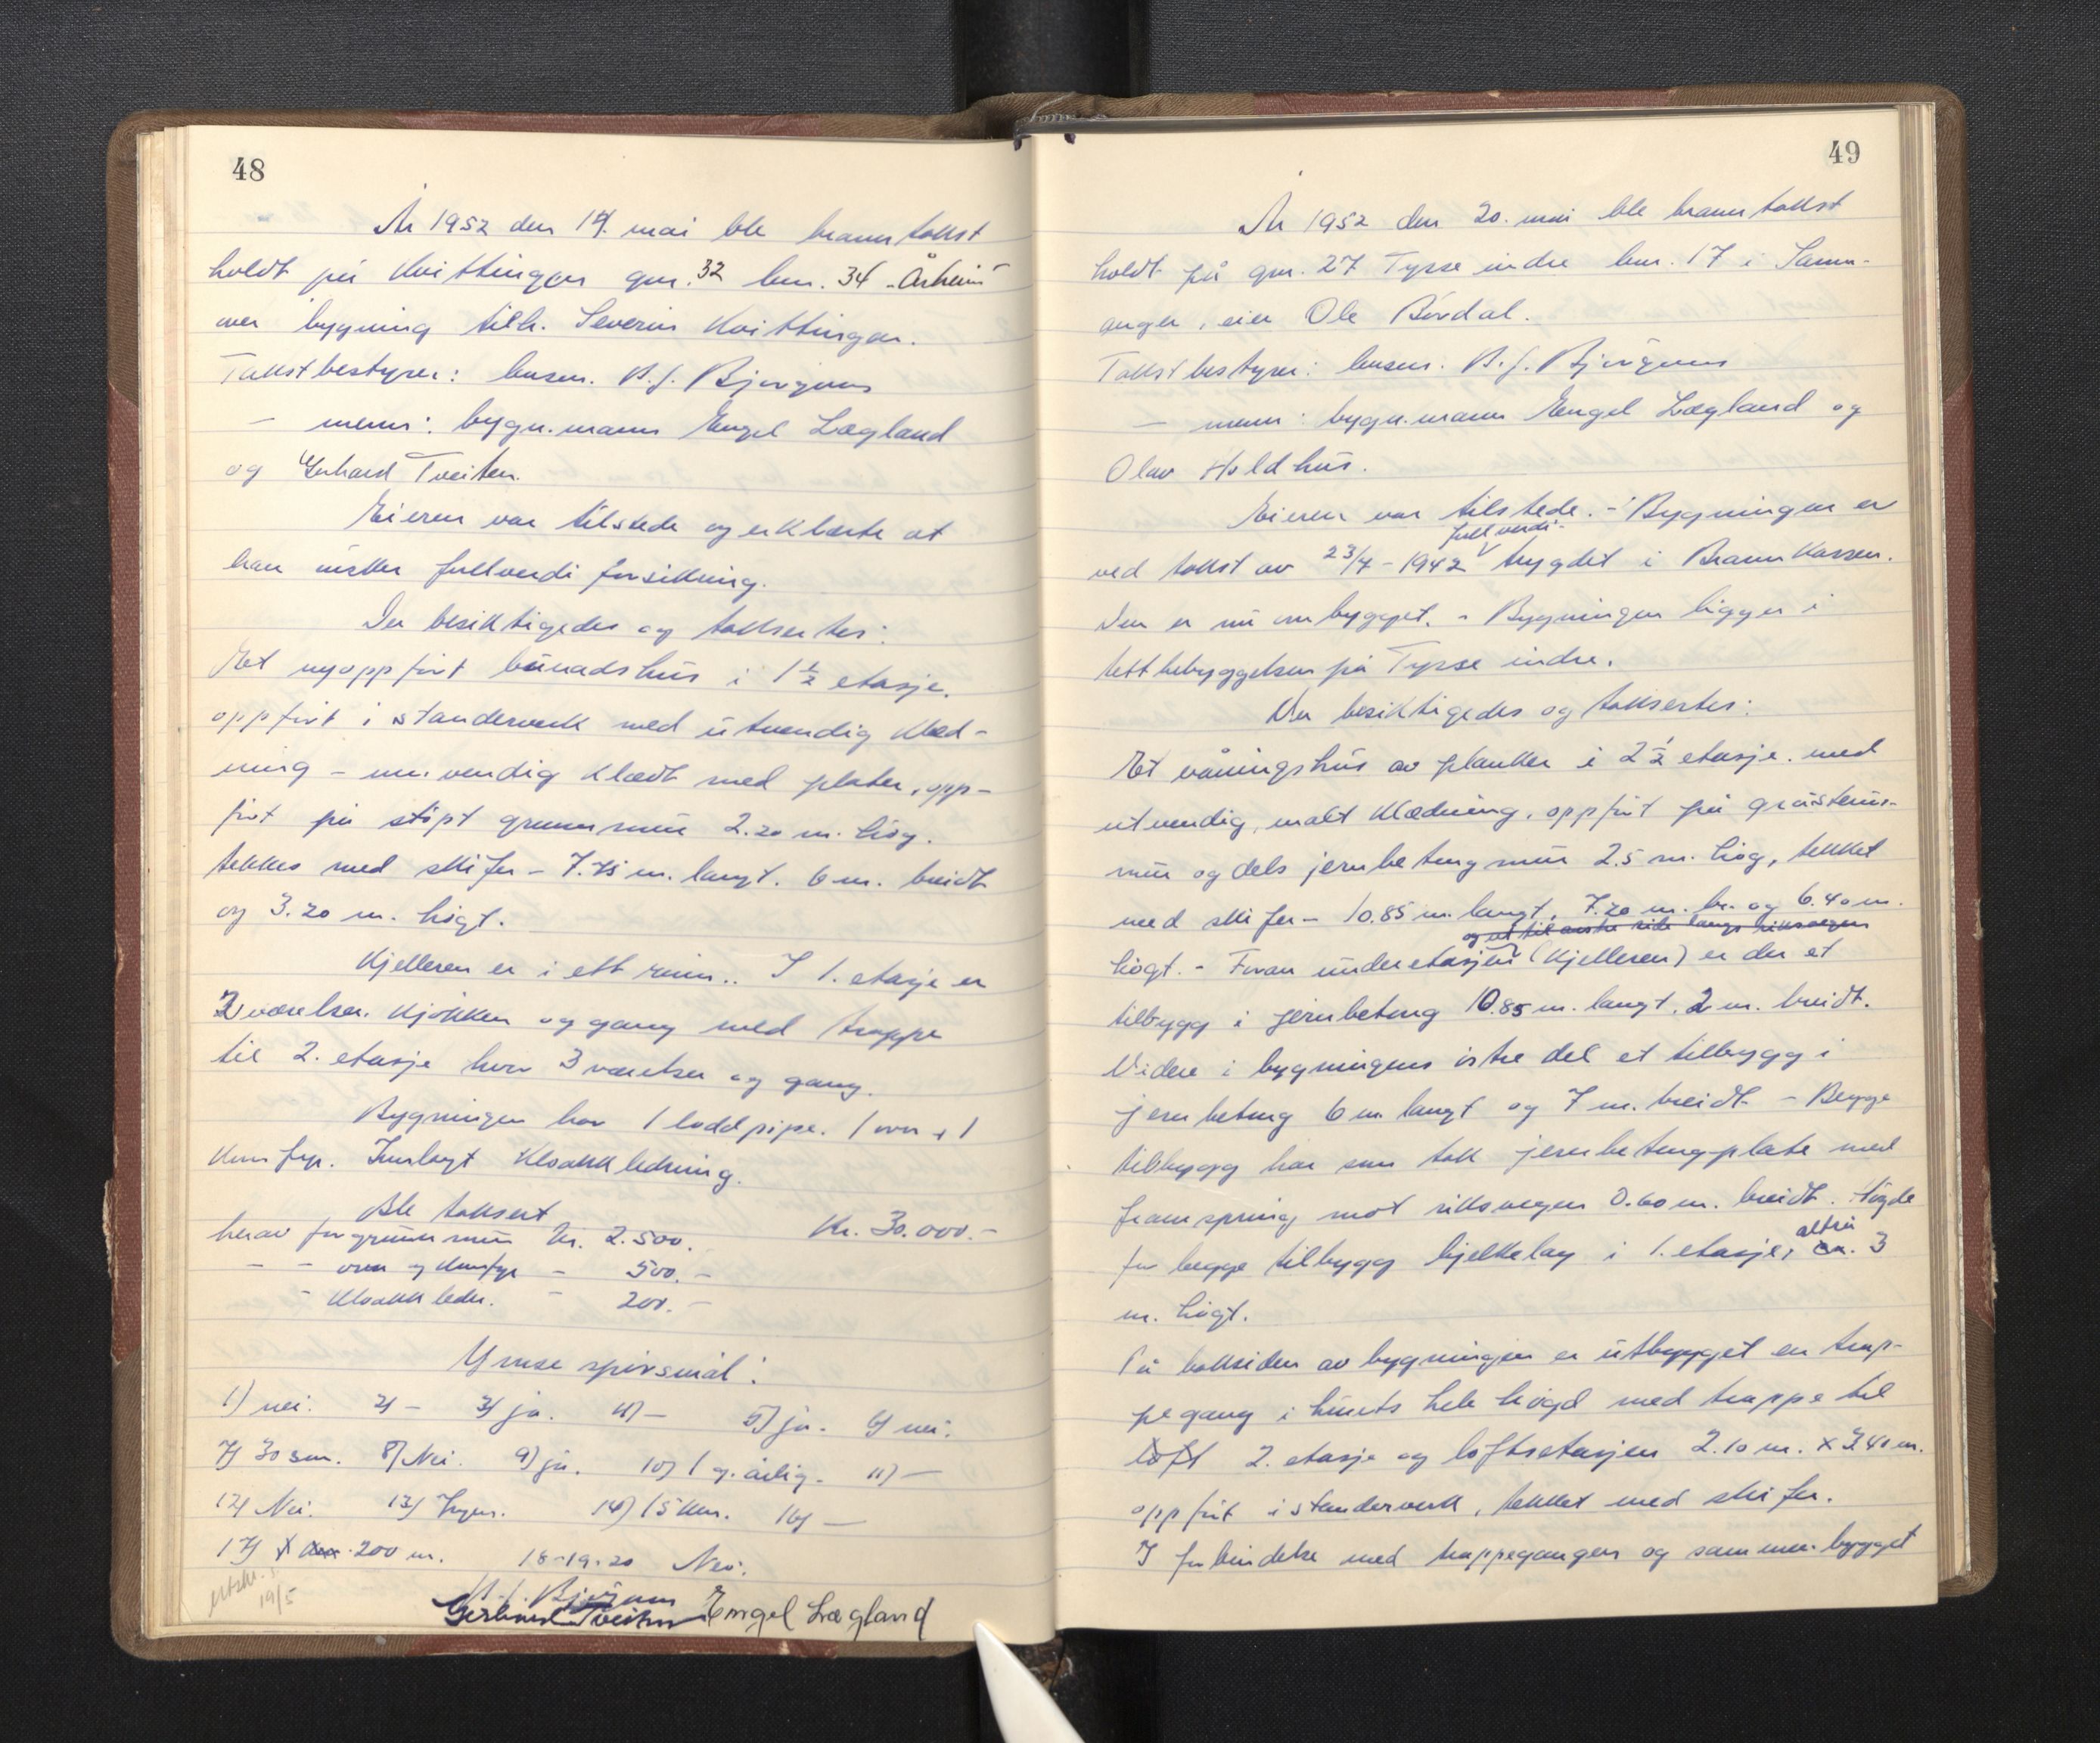 48
År 1952 den 14. mai ble branntakst
holdt på Kvittingen gnr. 32 bnr. 34 "Årheim"
over bygning tilh. Severin Kvittingen.
Takstbestyrer: lensm. B. J. Bjørgum
— menn: bygn.mann Engel Lægland
og Gerhard Tveiten.
Eieren var tilstede og erklærte at
han ønsker fullverdi forsikring.
Der besiktigedes og taksertes:
Et nyoppført bunadshus i 1½ etasje.
oppført i standerverk med utvendig klæd-
ning – innvendig klædt med plater, opp-
ført på støpt grunnmur 2.20 m. høg.
tekkes med skifer – 7.75 m. langt. 6 m. breidt
og 3.20 m. høgt.
Kjelleren er i ett rum.. I 1. etasje er
2 værelser. kjøkken og gang med trappe
til 2. etasje hvor 3 værelser og gang.
Bygningen har 1 loddpipe. 1 ovn + 1
komfyr. Innlagt kloakkledning.
Ble taksert Kr. 30.000.–
herav for grunnmur kr. 2.500.
– – ovn og komfyr – 500.–
– kloakkledn. – 200.–
Ymse spørsmål:
1) nei. 2) – 3) ja. 4) – 5) ja. 6) nei.
7) 30 sm. 8) Nei. 9) ja. 10) 1 g. årlig. 11) –
12) Nei. 13) Ingen. 14) 15 km. 16) –
17) 200 m. 18-19-20 Nei.
19/5
B. J. Bjørgum
Gerhard Tveiten Engel Lægland
49
År 1952 den 20. mai ble branntakst
holdt på gnr. 27 Tysse indre bnr. 17 i Samn-
anger, eier Ole Børdal.
Takstbestyrer: lensm. B. J. Bjørgum
— menn: bygn.mann Engel Lægland og
Olav Holdhus.
Eieren var tilstede. – Bygningen er
fullverdi-
ved takst av 23/4 – 1942 trygdet i Brannkassen.
Den er nu ombygget. – Bygningen ligger i
tettbebyggelsen på Tysse indre.
Der besiktigedes og taksertes:
Et våningshus av planker i 2½ etasje. med
utvendig, malt klædning, oppført på gråsteins-
mur og dels jernbetong mur 2.5 m. høg, tekket
med skifer – 10.85 m. langt, 7.20 m. br. og 6.40 m.
og ut til austre side langs riksvegen
høgt. – Foran underetasjen (kjelleren) er der et
tilbygg i jernbetong 10.85 m. langt, 2 m. breidt.
Videre i bygningens østre del et tilbygg i
jernbetong 6 m. langt og 7 m. breidt – Begge
tilbygg har som tak jernbetongplate med
framspring mot riksvegen 0.60 m. breidt. Høgde
altså
for begge tilbygg bjelkelag i 1. etasje, ca. 3
m. høgt.
På baksiden av bygningen er utbygget en trap-
pegang i husets hele høgd med trappe til
loft 2. etasje og loftsetasjen 2.10 m. x 3.40 m.
oppført i standerverk, tekket med skifer.
I forbindelse med trappegangen og sammenbygget